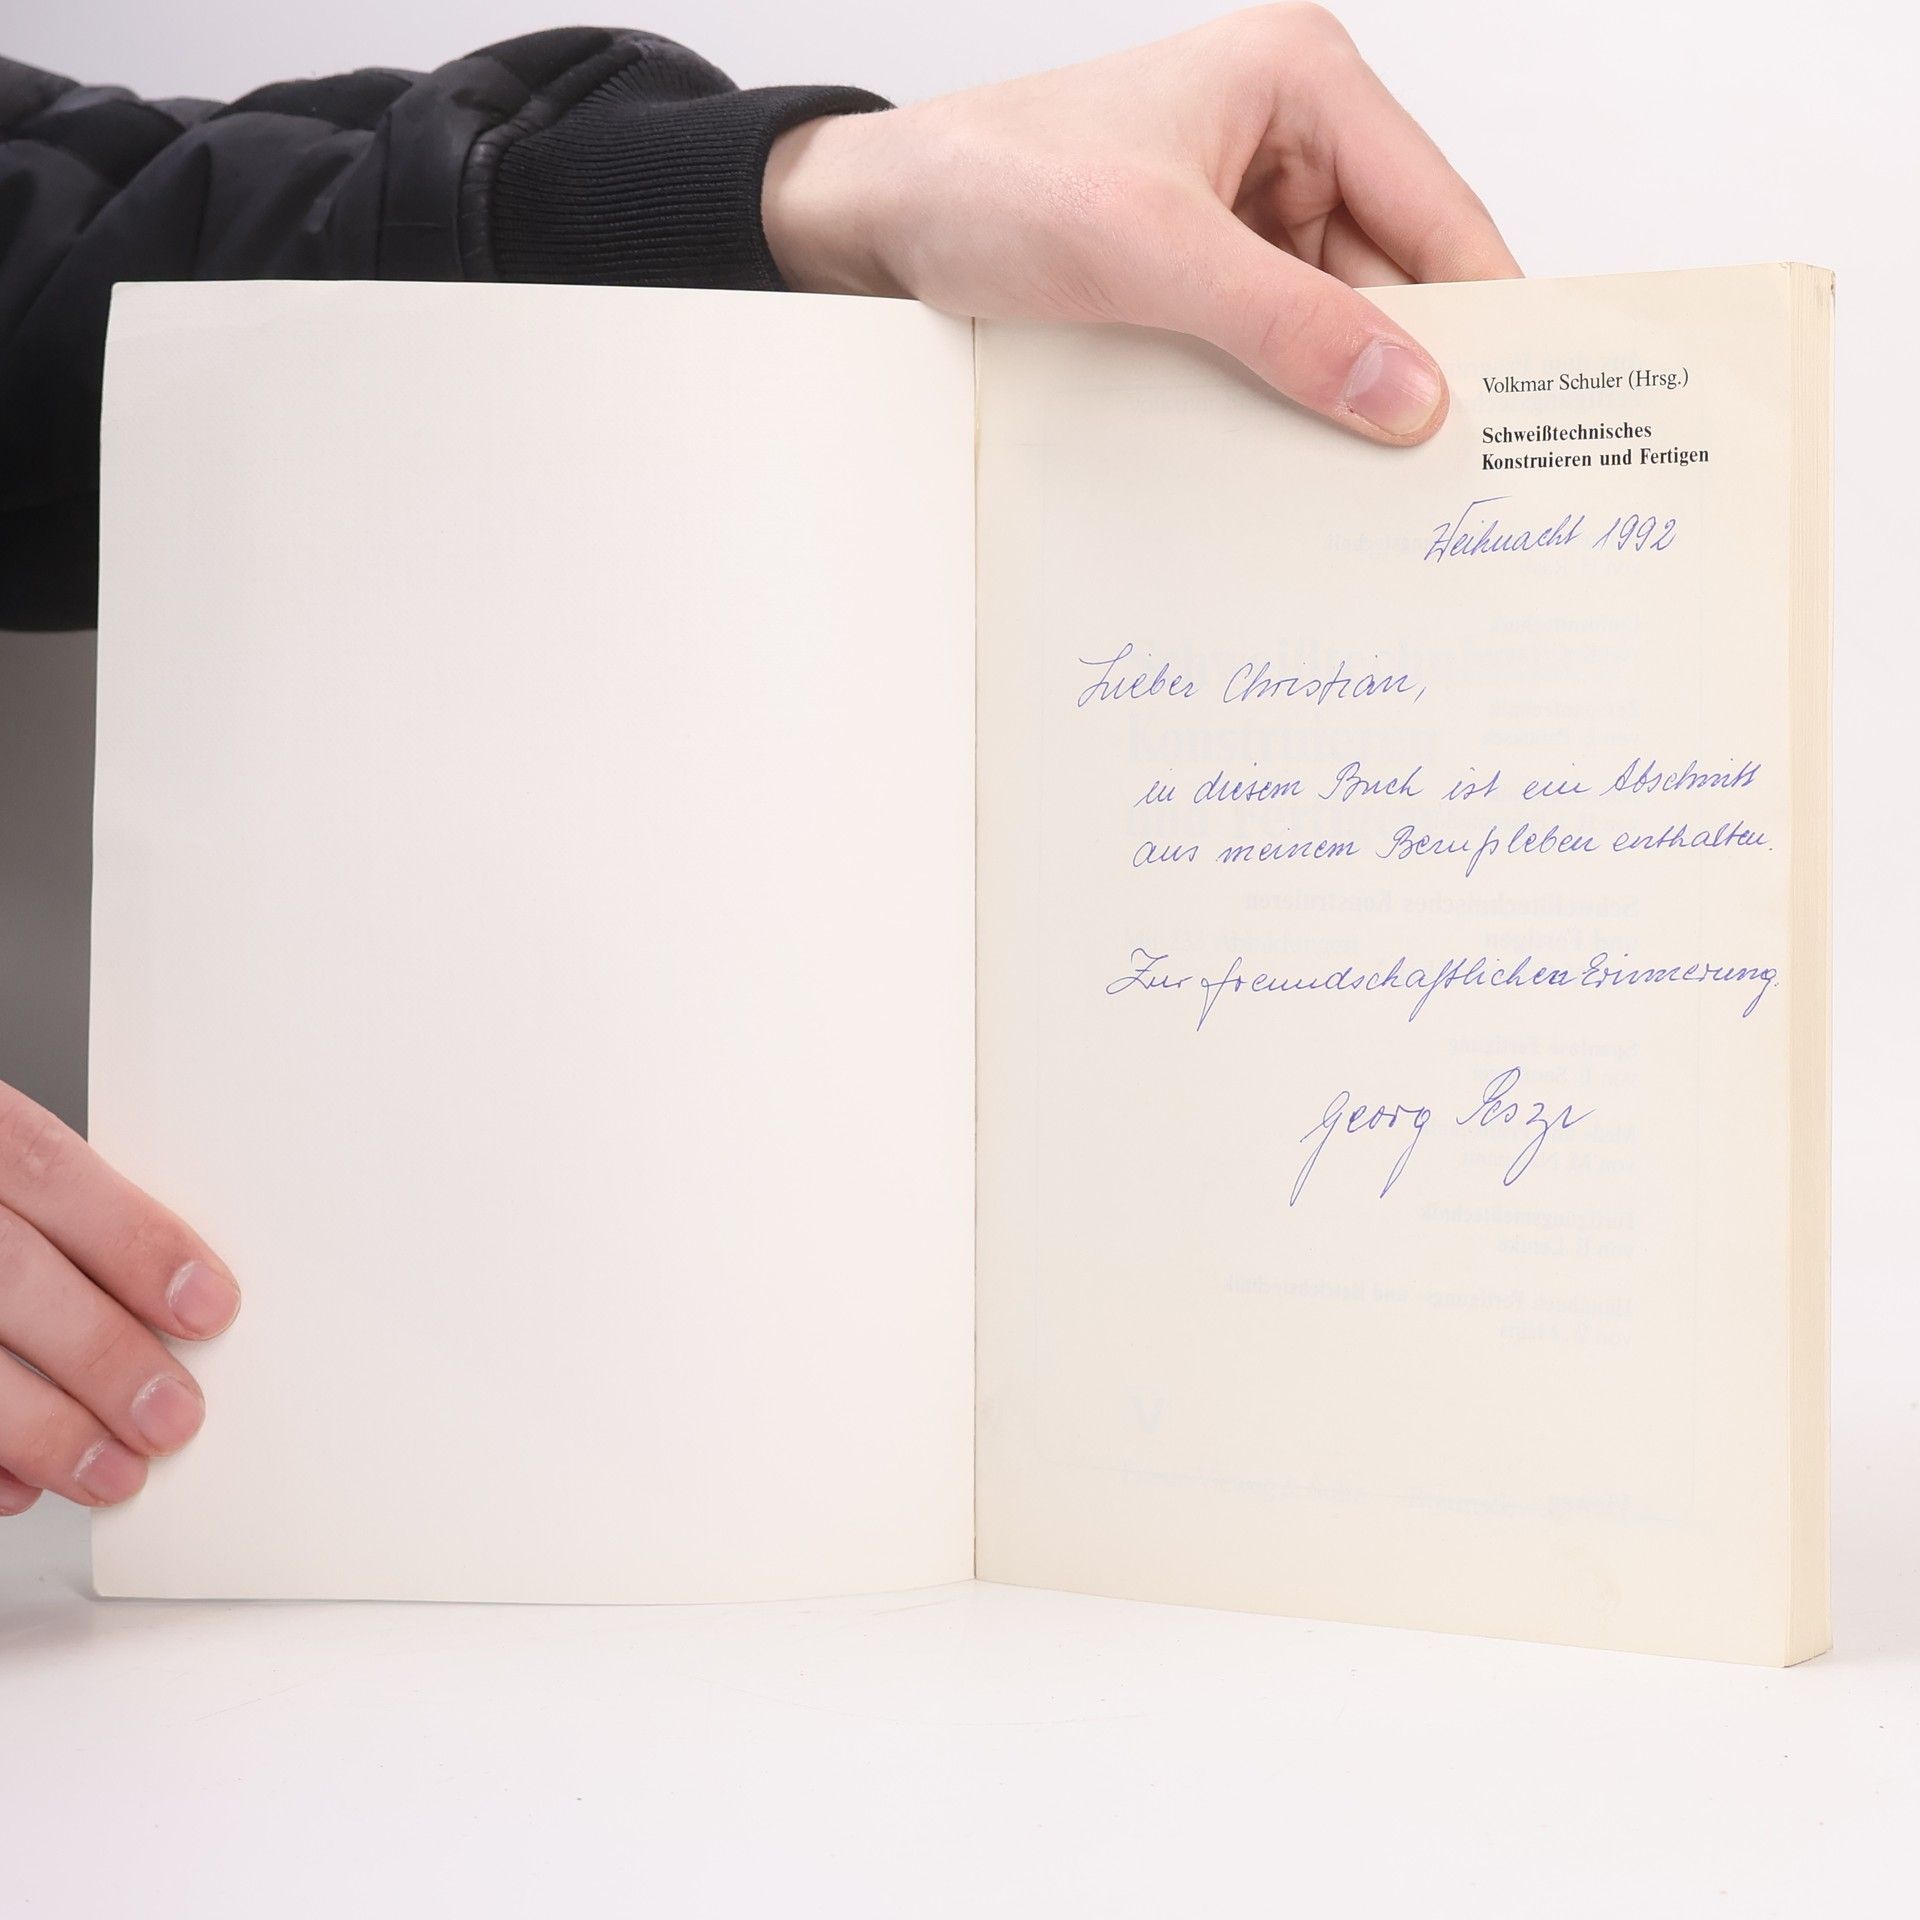 Volkmar Schuler (Hrsg.)
Schweißtechnisches
Konstruieren und Fertigen
Weihnacht 1992
Lieber Christian,
in diesem Buch ist ein Abschnitt
aus meinem Berufsleben enthalten.
Zur freundschaftlichen Erinnerung.
Georg